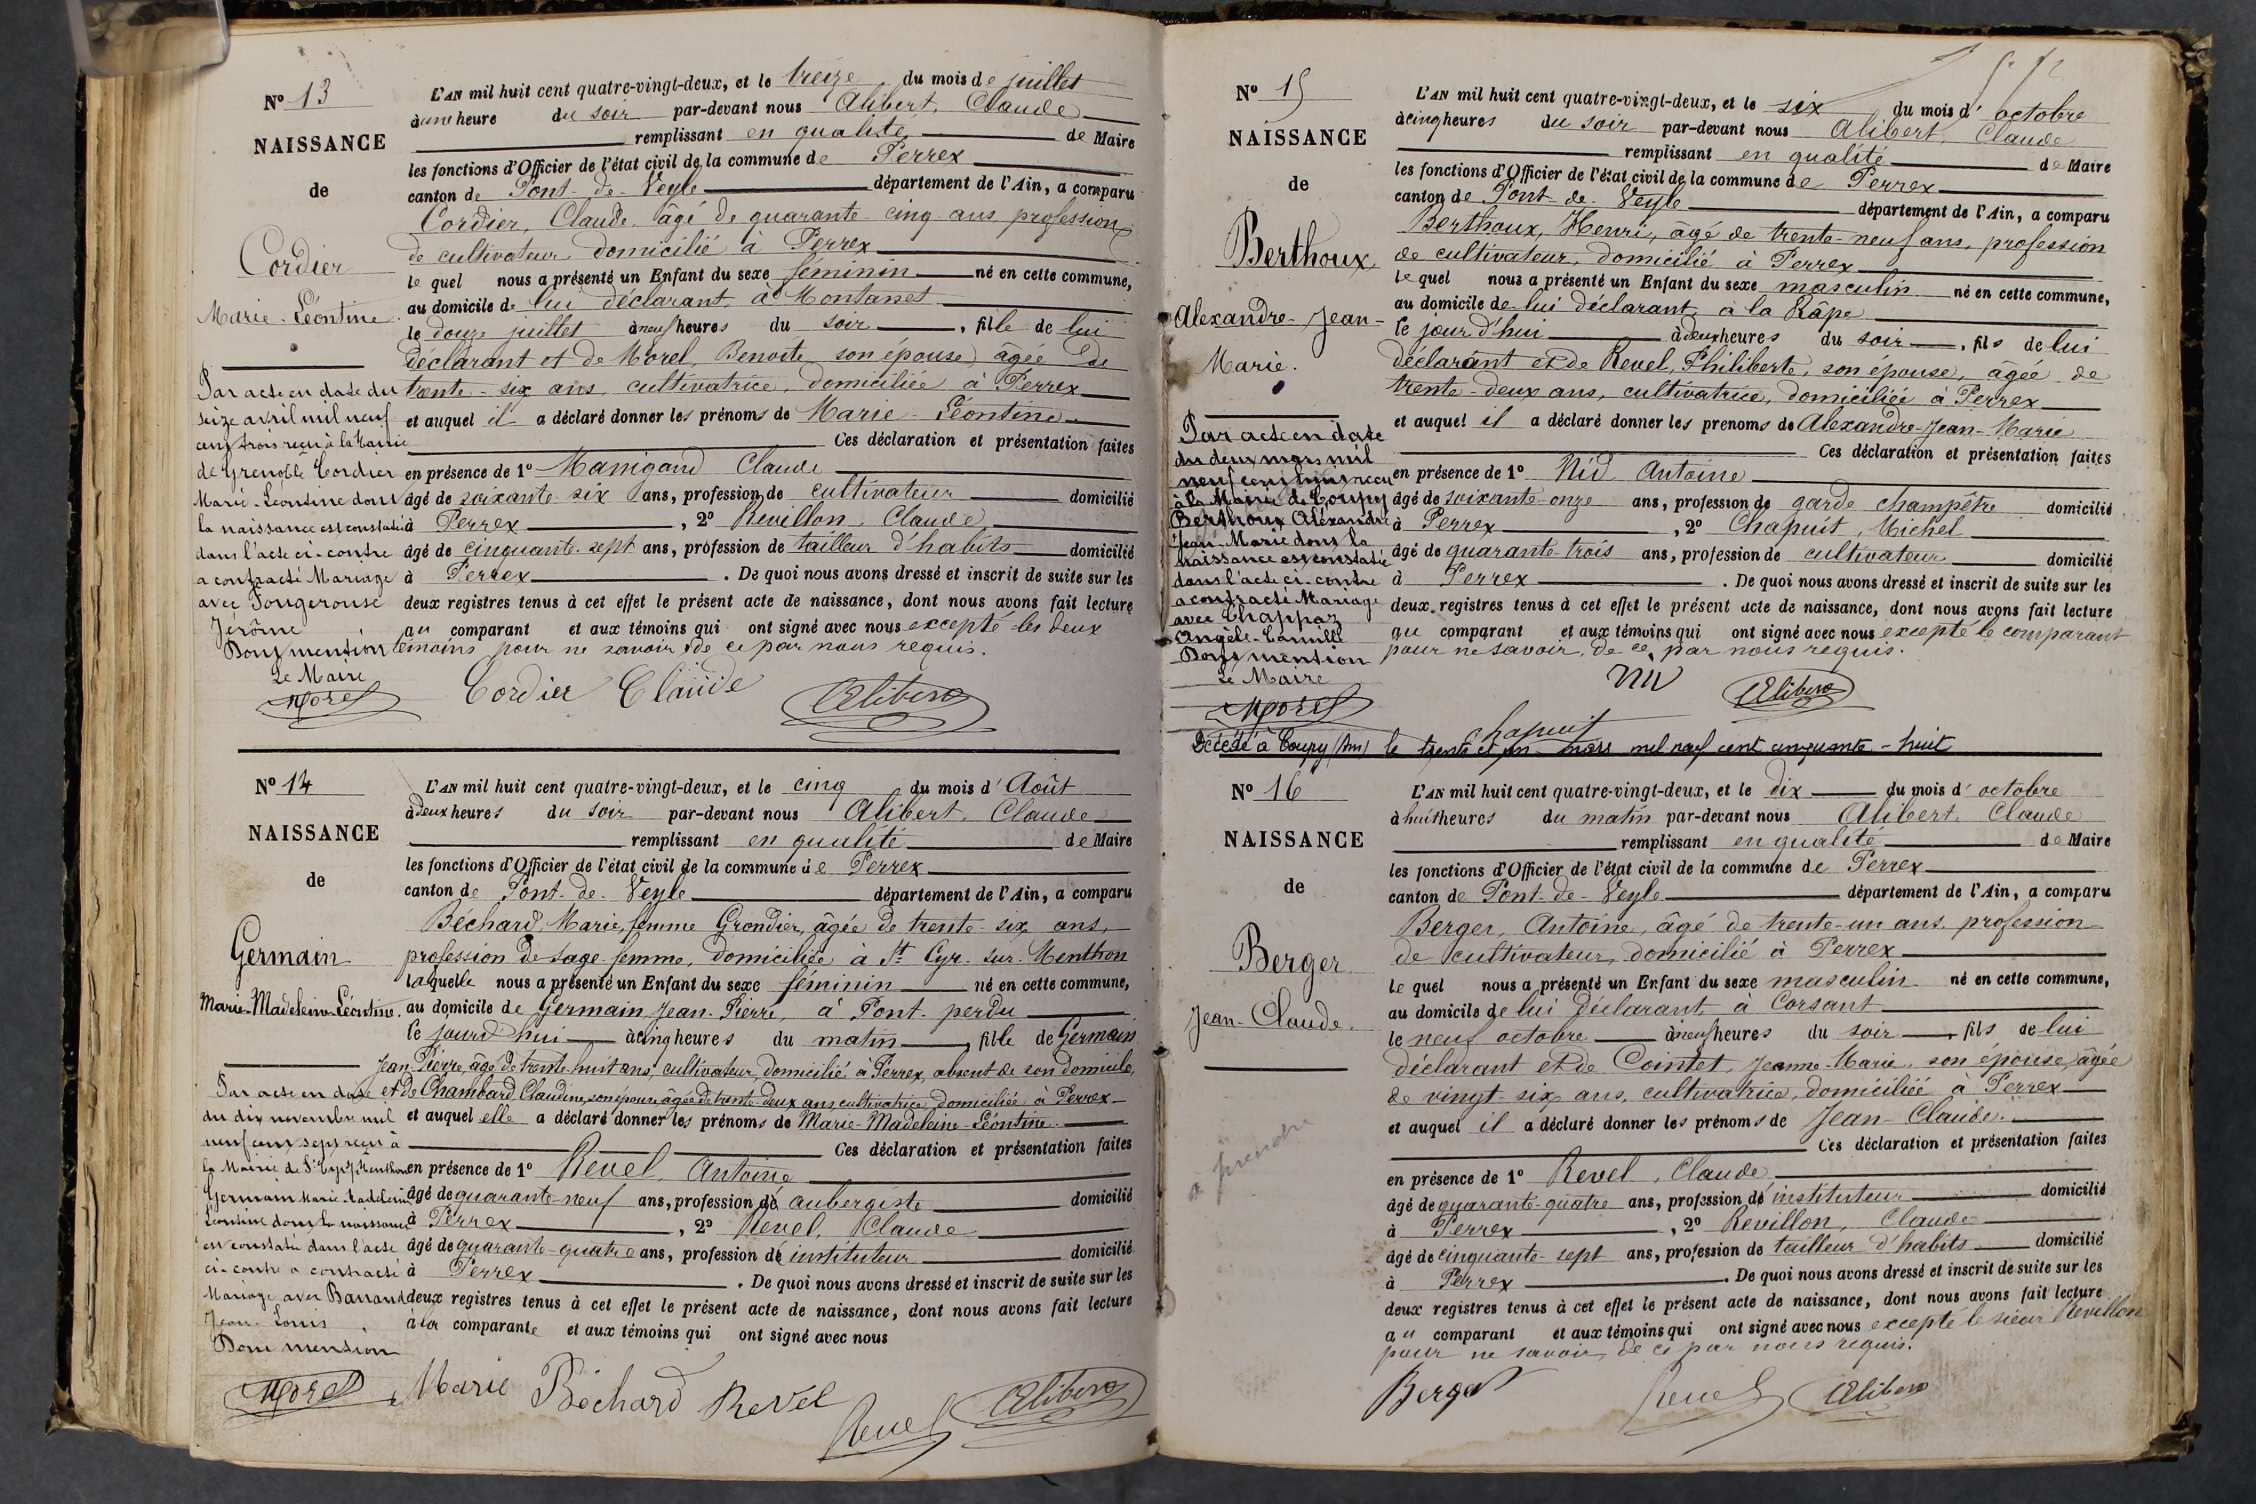 N° 13
NAISSANCE
de
Cordier
Marie-Léontine
Par acte en date du
seize avril mil neuf
cent trois reçu à la Mairie
de Grenoble Cordier
Marie-Léontine dont
la naissance est constatée
dans l'acte ci-contre
a contracté Mariage
avec Fougerouse
Jérôme
Dont mention
Le Maire
Morel
L'AN mil huit cent quatre-vingt-deux, et le treize du mois de juillet
à une heure du soir par-devant nous Alibert, Claude
remplissant en qualité de Maire
les fonctions d'Officier de l'état civil de la commune de Perrex
canton de Pont-de-Veyle département de l'Ain, a comparu
Cordier, Claude âgé de quarante-cinq ans profession
de cultivateur domicilié à Perrex
le quel nous a présenté un Enfant du sexe féminin né en cette commune,
au domicile de lui déclarant à Montanet
le douze juillet à neuf heures du soir, fille de lui
déclarant et de Morel Benoite son épouse âgée de
trente-six ans, cultivatrice, domiciliée à Perrex
et auquel il a déclaré donner les prénoms de Marie-Léontine
Ces déclaration et présentation faites
en présence de 1° Manigand Claude
âgé de soixante-six ans, profession de cultivateur domicilié
à Perrex, 2° Revillon, Claude
âgé de cinquante-sept ans, profession de tailleur d'habits domicilié
à Perrex. De quoi nous avons dressé et inscrit de suite sur les
deux registres tenus à cet effet le présent acte de naissance, dont nous avons fait lecture
au comparant et aux témoins qui ont signé avec nous excepté les deux
témoins pour ne savoir de ce par nous requis.
Cordier Claude Alibert
N° 14
NAISSANCE
de
Germain
Marie-Madeleine-Léontine.
Par acte en date
du dix novembre mil
neuf cent sept reçu à
la Mairie de St Cyr s/ Menthon
Germain Marie-Madeleine
Léontine dont la naissance
est constatée dans l'acte
ci-contre a contracté
Mariage avec Banand
Jean-Louis
Dont mention
Morel
L'AN mil huit cent quatre-vingt-deux, et le cinq du mois d'Août
à deux heures du soir par-devant nous Alibert, Claude
remplissant en qualité de Maire
les fonctions d'Officier de l'état civil de la commune de Perrex
canton de Pont-de-Veyle département de l'Ain, a comparu
Béchard, Marie, femme Grondier, âgée de trente-six ans,
profession de sage-femme, domiciliée à St Cyr-sur-Menthon
laquelle nous a présenté un Enfant du sexe féminin né en cette commune,
au domicile de Germain, Jean-Pierre, à Pont-perdu
le jourd'hui à cinq heures du matin, fille de Germain
Jean-Pierre, âgé de trente-huit ans, cultivateur, domicilié à Perrex, absent de son domicile,
et de Chambard Claudine, son épouse âgée de trente-deux ans, cultivatrice, domiciliée à Perrex
et auquel elle a déclaré donner les prénoms de Marie-Madeleine-Léontine.
Ces déclaration et présentation faites
en présence de 1° Revel, Antoine
âgé de quarante-neuf ans, profession de aubergiste domicilié
à Perrex, 2° Revel, Claude
âgé de quarante-quatre ans, profession de instituteur domicilié
à Perrex. De quoi nous avons dressé et inscrit de suite sur les
deux registres tenus à cet effet le présent acte de naissance, dont nous avons fait lecture
à la comparante et aux témoins qui ont signé avec nous
Marie Béchard Revel Revel Alibert
N° 15
NAISSANCE
de
Berthoux
Alexandre-Jean-
Marie.
Par acte en date
du deux mars mil
neuf cent reçu
à la Mairie de Coupy
Berthoux Aléxandre
Jean-Marie dont la
naissance est constatée
dans l'acte ci-contre
a contracté Mariage
avec Chappaz
Angèle-Camille
Dont mention
Le Maire
Morel
L'AN mil huit cent quatre-vingt-deux, et le six du mois d'octobre
à cinq heures du soir par-devant nous Alibert, Claude
remplissant en qualité de Maire
les fonctions d'Officier de l'état civil de la commune de Perrex
canton de Pont-de-Veyle département de l'Ain, a comparu
Berthoux, Henri, âgé de trente-neuf ans, profession
de cultivateur, domicilié à Perrex
le quel nous a présenté un Enfant du sexe masculin né en cette commune,
au domicile de lui déclarant, à la Râpe
le jour d'hui à deux heures du soir, fils de lui
déclarant et de Revel, Philiberte, son épouse, âgée de
trente-deux ans, cultivatrice, domiciliée à Perrex
et auquel il a déclaré donner les prenoms de Alexandre-Jean-Marie
Ces déclaration et présentation faites
en présence de 1° Nid Antoine
âgé de soixante-onze ans, profession de garde champêtre domicilié
à Perrex, 2° Chapuit, Michel
âgé de quarante-trois ans, profession de cultivateur domicilié
à Perrex. De quoi nous avons dressé et inscrit de suite sur les
deux registres tenus à cet effet le présent acte de naissance, dont nous avons fait lecture
au comparant et aux témoins qui ont signé avec nous excepté le comparant
pour ne savoir, de ce, par nous requis.
Alibert
chapuit
Décédé à Coupy (Ain) le trente et un mars mil neuf cent cinquante-huit
N° 16
NAISSANCE
de
Berger
Jean-Claude.
à prendre
L'AN mil huit cent quatre-vingt-deux, et le dix du mois d'octobre
à huit heures du matin par-devant nous Alibert, Claude
remplissant en qualité de Maire
les fonctions d'Officier de l'état civil de la commune de Perrex
canton de Pont-de-Veyle département de l'Ain, a comparu
Berger, Antoine, âgé de trente-un ans, profession
de cultivateur, domicilié à Perrex
le quel nous a présenté un Enfant du sexe masculin né en cette commune,
au domicile de lui déclarant, à Corsant
le neuf octobre à neuf heures du soir, fils de lui
déclarant et de Cointet, Jeanne-Marie, son épouse, âgée
de vingt-six ans, cultivatrice, domiciliée à Perrex
et auquel il a déclaré donner les prénoms de Jean-Claude.
Ces déclaration et présentation faites
en présence de 1° Revel, Claude
âgé de quarante-quatre ans, profession de instituteur domicilié
à Perrex, 2° Revillon, Claude
âgé de cinquante-sept ans, profession de tailleur d'habits domicilié
à Perrex. De quoi nous avons dressé et inscrit de suite sur les
deux registres tenus à cet effet le présent acte de naissance, dont nous avons fait lecture
au comparant et aux témoins qui ont signé avec nous excepté le sieur Revillon
pour ne savoir, de ce par nous requis.
Berger Revel Alibert